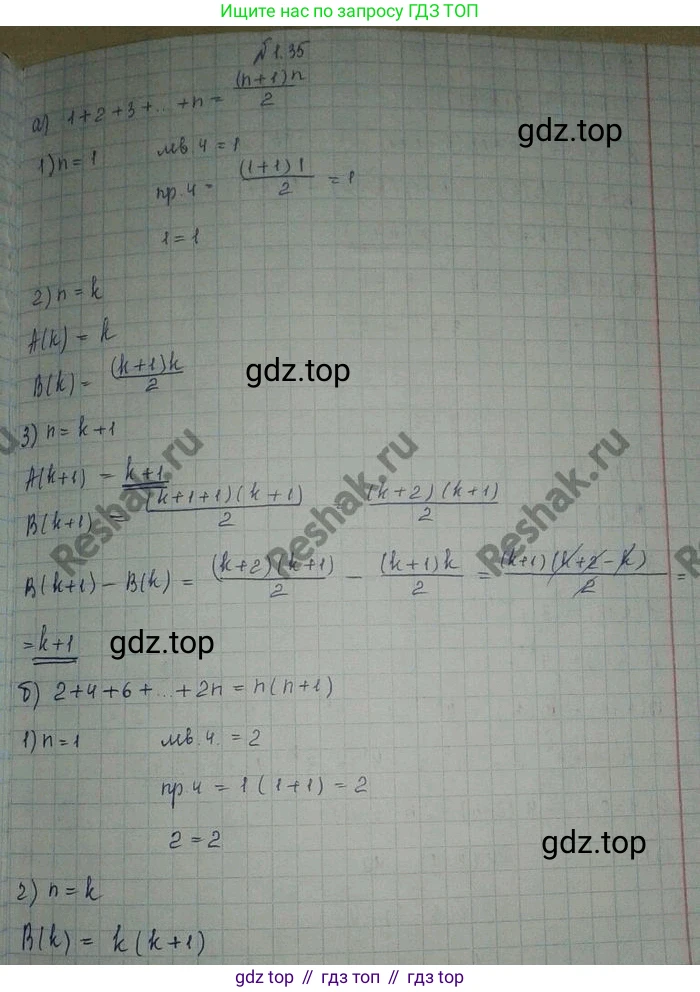 Ищите нас по запросу ГДЗ ТОП
№1.35
а) 1+2+3+...+n = (n+1)n/2
1) n=1 лев.ч = 1
пр.ч = (1+1)1/2 = 1
1=1
gdz.top
2) n=k
A(k) = k
B(k) = (k+1)k/2
gdz.top
3) n=k+1
A(k+1) = k+1
B(k+1) = (k+1+1)(k+1)/2 (k+2)(k+1)/2
Reshak.ru Reshak.ru Reshak.ru
B(k+1) - B(k) = (k+2)(k+1)/2 - (k+1)k/2 = (k+1)(k+2-k)/2 =
= k+1
gdz.top gdz.top
б) 2+4+6+...+2n = n(n+1)
1) n=1 лев.ч. = 2
пр.ч = 1(1+1) = 2
2=2
gdz.top
2) n=k
B(k) = k(k+1)
gdz.top // гдз топ // gdz.top // гдз топ // gdz.top